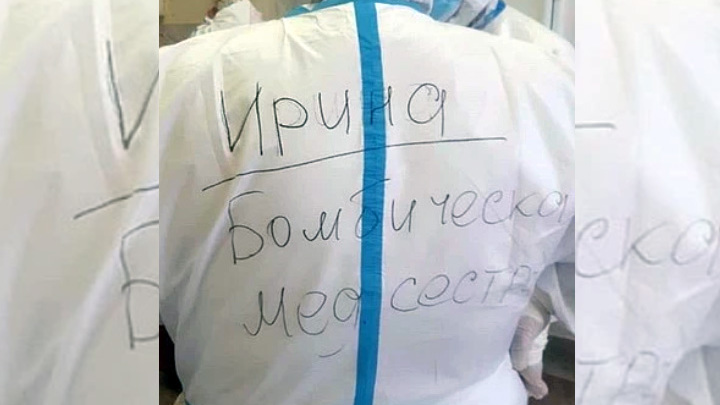 Ирина
Бомбическа
мед сестра